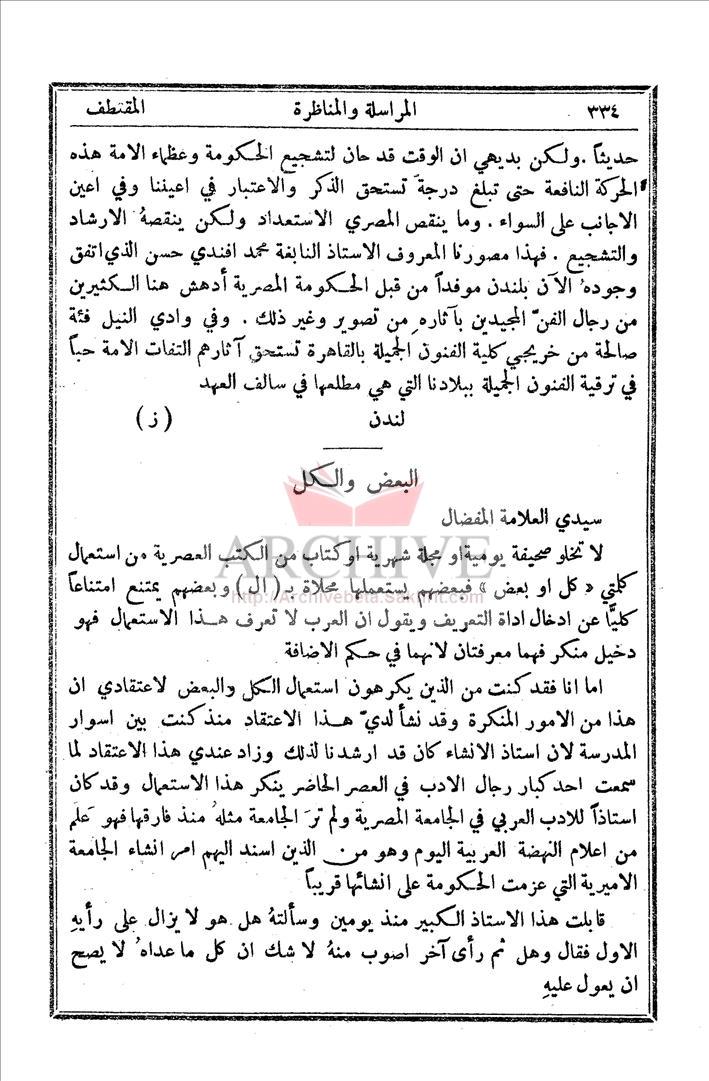 ٣٣٤ المراسلة والمناظرة المقتطف
حديثاً . ولكن بديهي ان الوقت قد حان لتشجيع الحكومة وعظماء الامة هذه
الحركة النافعة حتى تبلغ درجة تستحق الذكر والاعتبار في اعيننا وفي اعين
الاجانب على السواء . وما ينقص المصري الاستعداد ولكن ينقصهُ الارشاد
والتشجيع . فهذا مصورنا المعروف الاستاذ النابغة محمد افندي حسن الذي اتفق
وجودهُ الآن بلندن موفداً من قبل الحكومة المصرية أدهش هنا الكثيرين
من رجال الفنّ المجيدين بآثارهِ من تصوير وغير ذلك . وفي وادي النيل فئة
صالحة من خريجي كلية الفنون الجميلة بالقاهرة تستحق آثارهم التفات الامة حباً
في ترقية الفنون الجميلة ببلادنا التي هي مطلعها في سالف العهد
لندن (ز)
البعض والكل
سيدي العلامة المفضال
لا تخلو صحيفة يومية او مجلة شهرية او كتاب من الكتب العصرية من استعمال
كلمتي « كل او بعض » فبعضهم يستعملها محلاة بـ ( ال ) وبعضهم يمتنع امتناعاً
كليًّا عن ادخال اداة التعريف ويقول ان العرب لا تعرف هذا الاستعمال فهو
دخيل منكر فهما معرفتان لانهما في حكم الاضافة
اما انا فقد كنت من الذين يكرهون استعمال الكل والبعض لاعتقادي ان
هذا من الامور المنكرة وقد نشأ لديّ هذا الاعتقاد منذ كنت بين اسوار
المدرسة لان استاذ الانشاء كان قد ارشدنا لذلك وزاد عندي هذا الاعتقاد لما
سمعت احد كبار رجال الادب في العصر الحاضر ينكر هذا الاستعمال وقد كان
استاذاً للادب العربي في الجامعة المصرية ولم ترَ الجامعة مثلهُ منذ فارقها فهو عَلم
من اعلام النهضة العربية اليوم وهو من الذين اسند اليهم امر انشاء الجامعة
الاميرية التي عزمت الحكومة على انشائها قريباً
قابلت هذا الاستاذ الكبير منذ يومين وسألتهُ هل هو لا يزال على رأيهِ
الاول فقال وهل ثم رأى آخر اصوب منهُ لا شك ان كل ما عداهُ لا يصح
ان يعول عليهِ
ARCHIVE
http://Archivebeta.Sakhrit.com